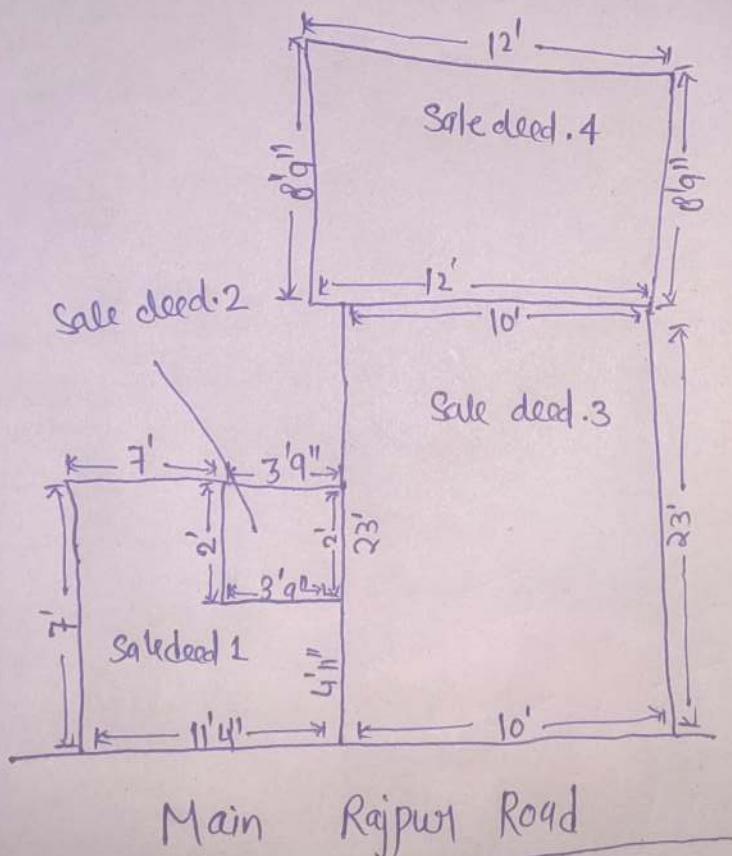 12'
Sale deed.4
8'9"
8'9"
12'
10'
Sale deed.2
Sale deed.3
7'
3'9"
2'
2'
23'
23'
3'9"
7'
Saledeed 1
4'11"
11'4"
10'
Main Rajpur Road